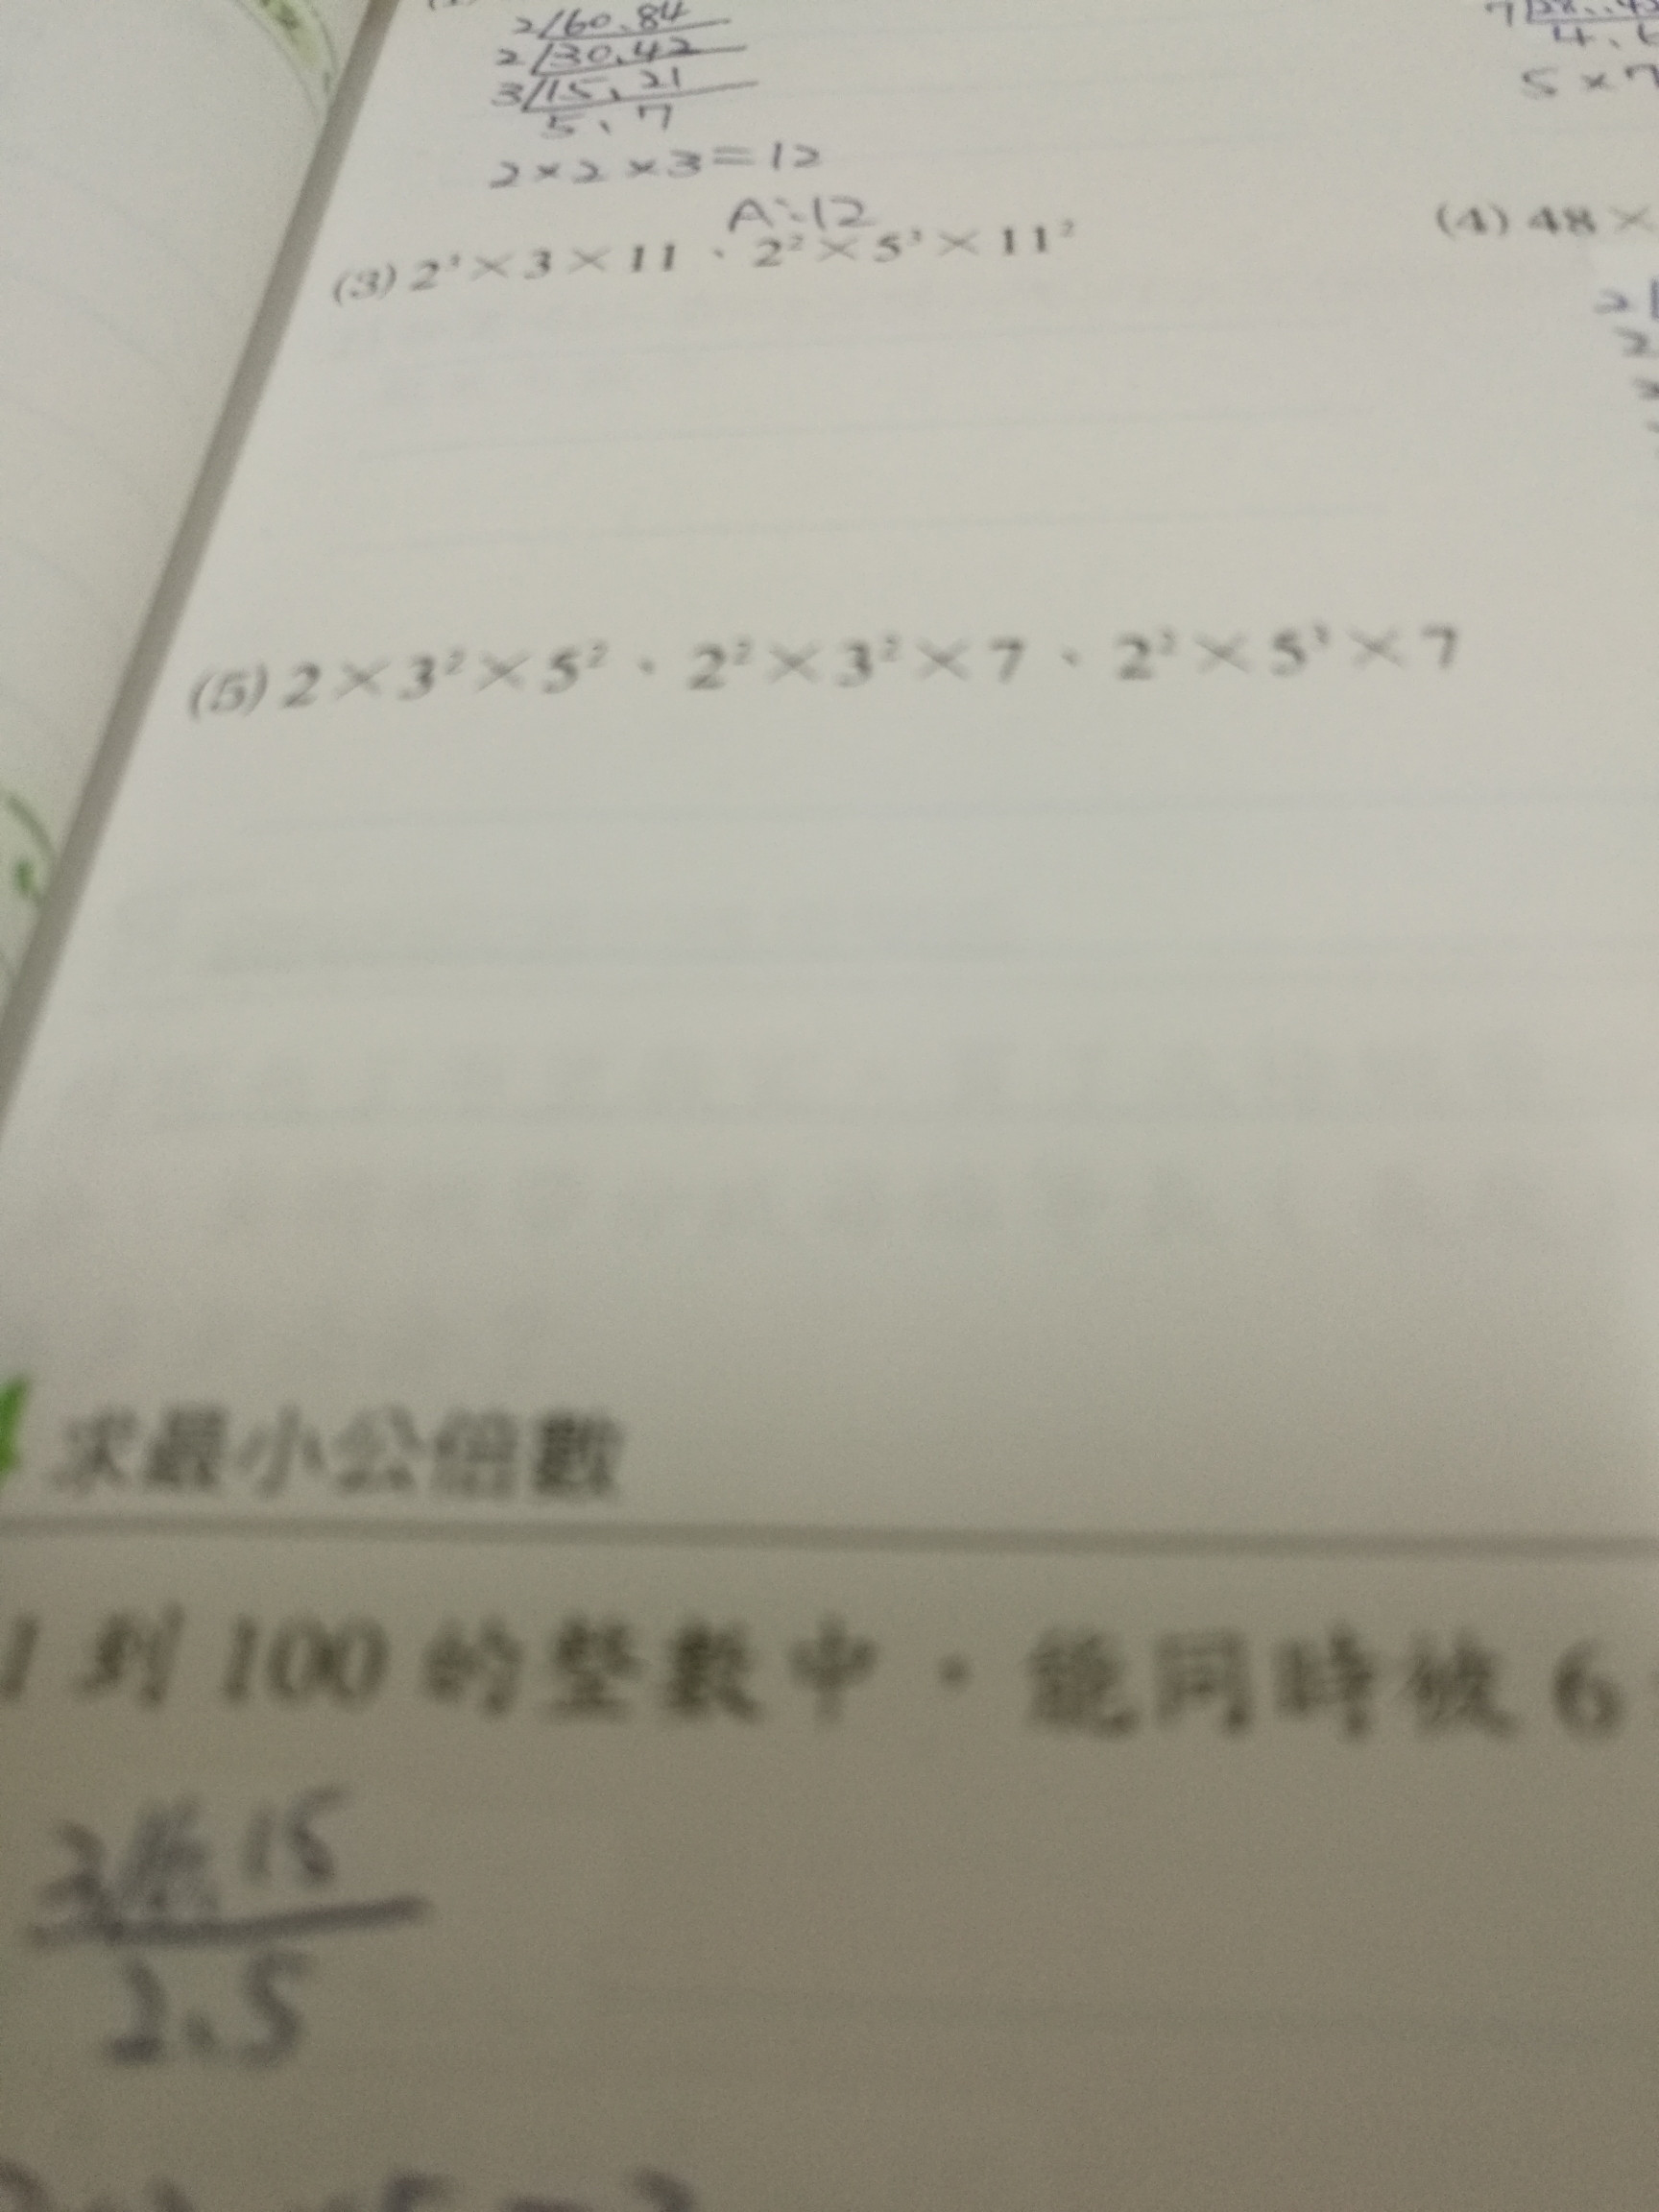 2 60、84
2 30、42
3 15、21
5、7
2×2×3=12
A:12
7
5×7
(3) 2³×3×11、2²×5³×11²
(4) 48×
2
2
(5) 2×3²×5²、2²×3²×7、2³×5³×7
求最小公倍數
1 到 100 的整數中，能同時被 6
15
2、5